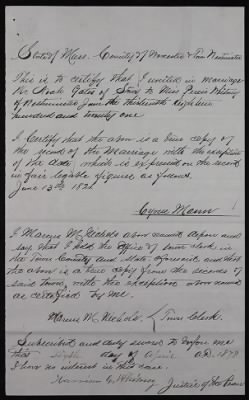 State of Mass. County of Worcester & Town Westminster
This is to certify that I united in marriage
Mr Noah Gates of Stow to Miss Persis Whitney
of Westminster June the thirteenth Eighteen
hundred and twenty one.
I Certify that the above is a true copy of
the record of the Marriage with the exception
of the date which is expressed on the record
in fair legible figures as found.
June 13th 182
Cyrus Mann
I Marcus W. Nichols above named depose and
say that I hold the office of town clerk in
the Town County and State aforesaid and that
the above is a true copy from the records of
said town, with the exception above named
as certified by me.
Marcus W. Nichols } Town Clerk.
Subscribed and duly sworn to before me
this day of April A.D. 1878
I have no interest in this case.
Whitney Justice of the Peace